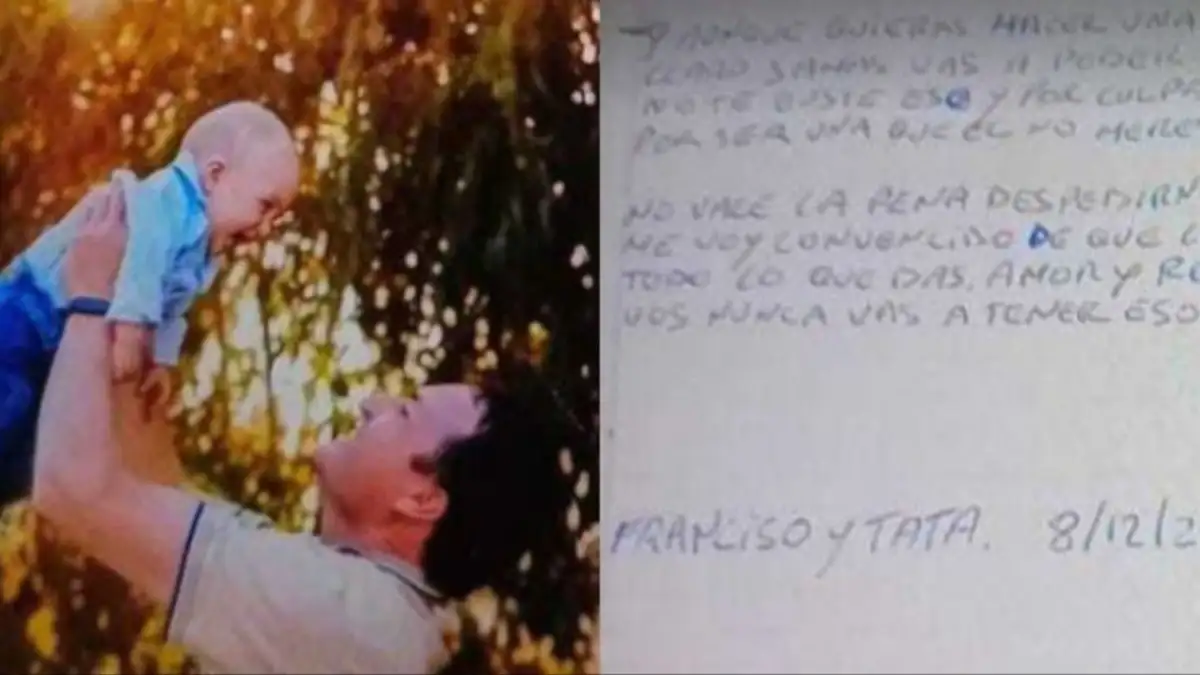 Y AUNQUE QUIERAS HACER UNA
CLARO JAMAS VAS A PODER
NO TE DISTE ESO Y POR CULPA
POR SER UNA QUE EL NO MERE
NO VALE LA PENA DESPEDIRN
ME VOY CONVENCIDO DE QUE
TODO LO QUE DAS, AMOR Y RE
VOS NUNCA VAS A TENER ESO
FRANCISO Y TATA. 8/12/2